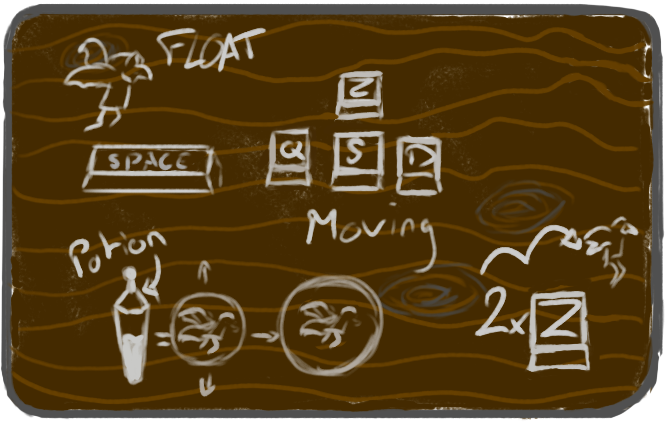 FLOAT
Z
SPACE
Q
S
D
Moving
Potion
2x
Z